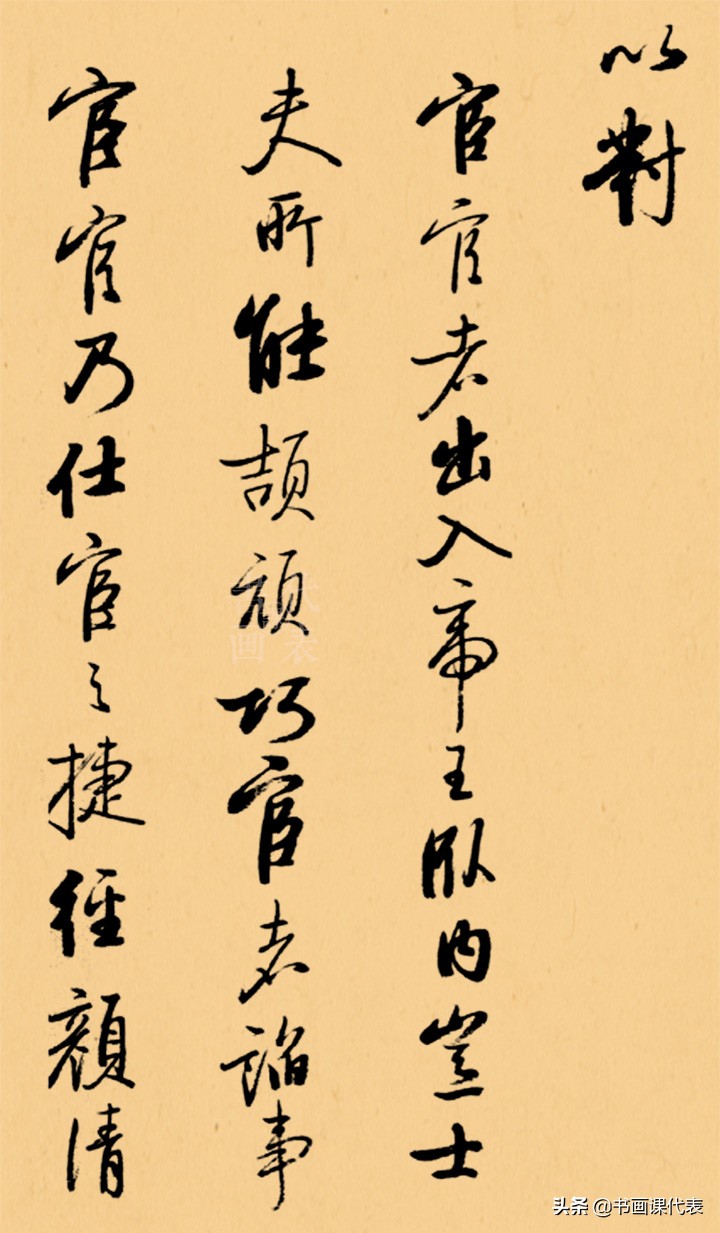 以對
宦官者出入帝王臥內豈士
夫所能頡頏巧宦者諂事
宦官乃仕宦之捷徑顏清
头条 @书画课代表